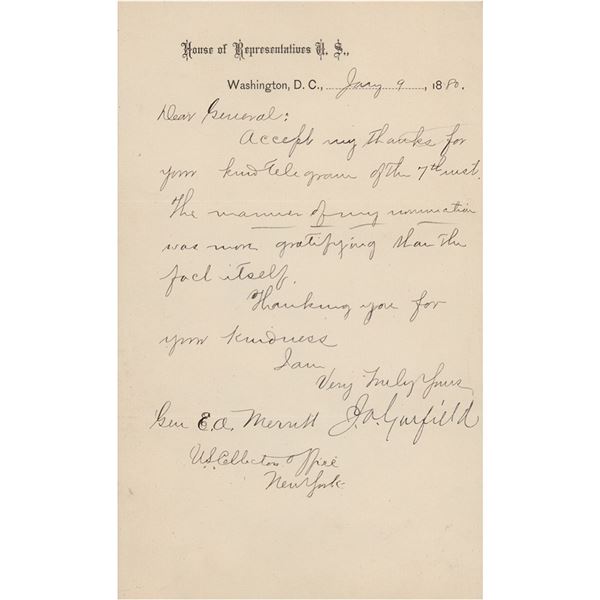 House of Representatives U. S.,
Washington, D. C., Jany 9, 1880.
Dear General:
Accept my thanks for
your kind telegram of the 7th inst.
The manner of my nomination
was more gratifying than the
fact itself.
Thanking you for
your kindness
I am
Very Truly Yours
J. A. Garfield
Gen E. A. Merritt
U.S. Collectors Office
New York